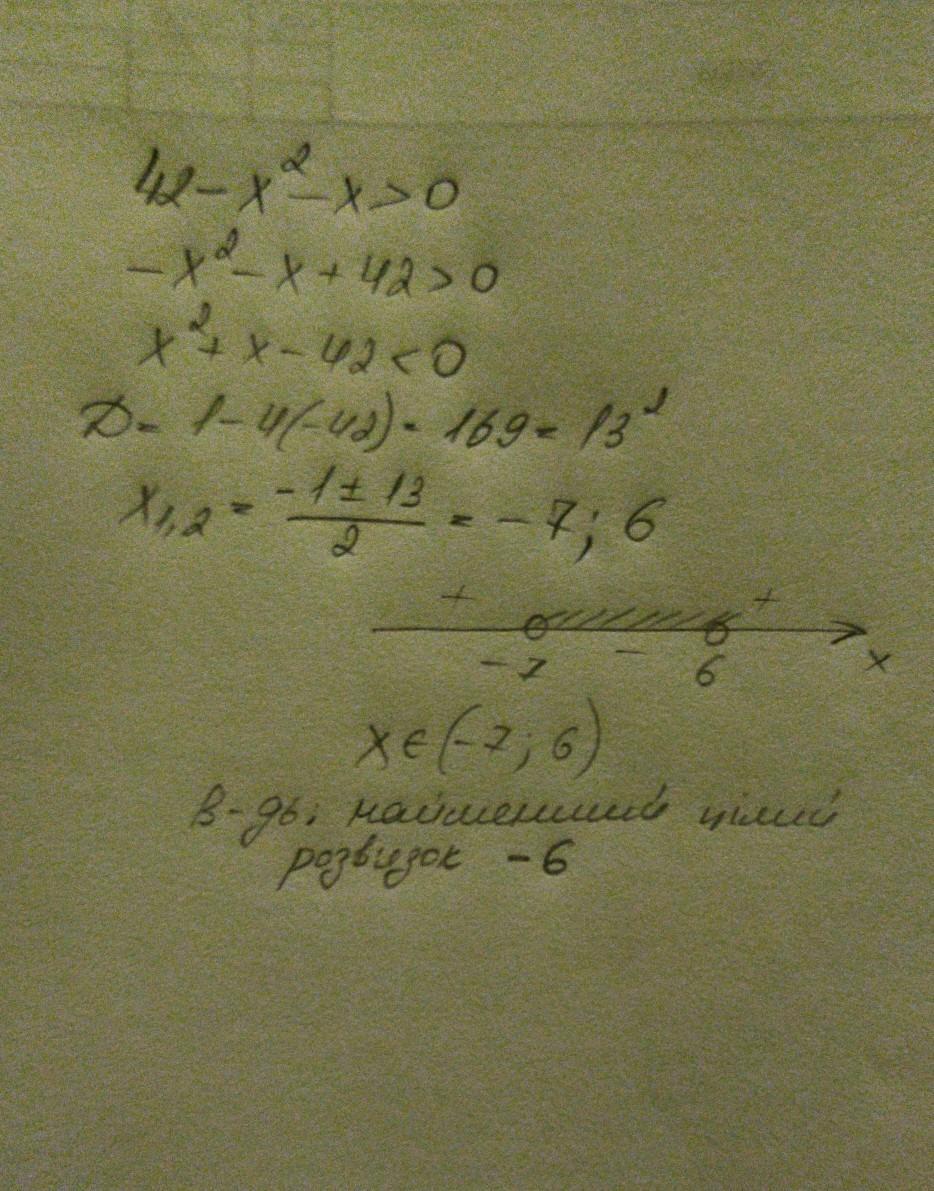 42-x²-x>0
-x²-x+42>0
x²+x-42<0
D= 1-4(-42)= 169= 13²
x₁,₂ = (-1±13)/2 = -7; 6
+ +
-7 - 6 x
x∈(-7; 6)
В-дь: найменший цілий
розв'язок -6